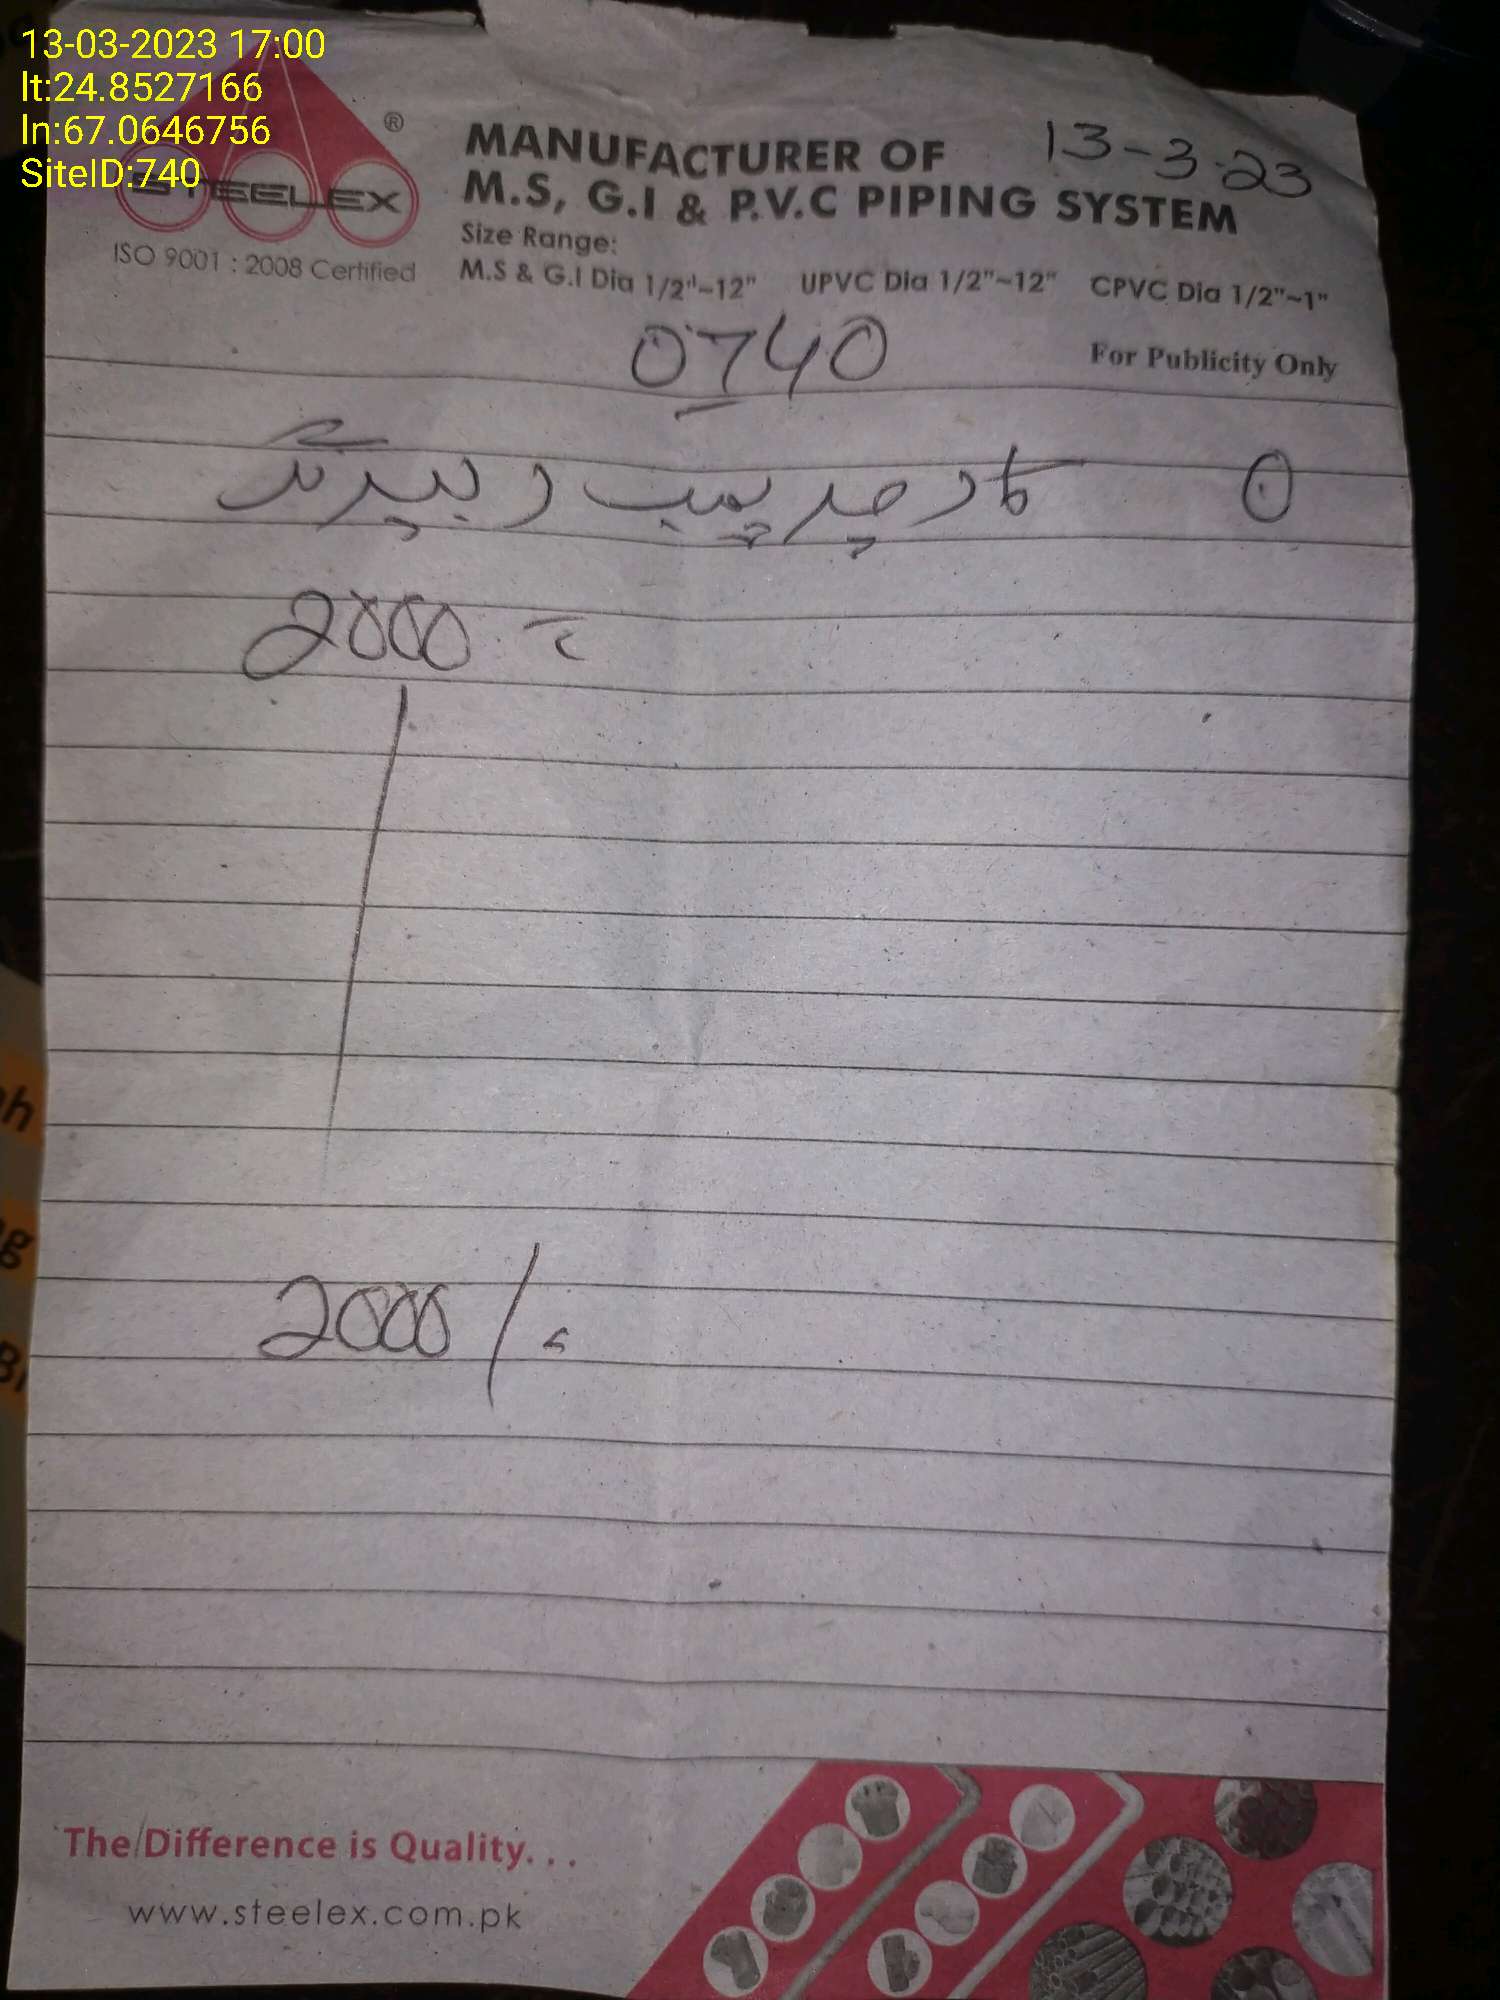 13-03-2023 17:00
lt:24.8527166
ln:67.0646756
SiteID:740
STEELEX ®
ISO 9001 : 2008 Certified
MANUFACTURER OF
M.S, G.I & P.V.C PIPING SYSTEM
13-3-23
Size Range:
M.S & G.I Dia 1/2"~12" UPVC Dia 1/2"~12" CPVC Dia 1/2"~1"
For Publicity Only
0740
پمپ رپیرنگ
2000
2000/
The Difference is Quality...
www.steelex.com.pk